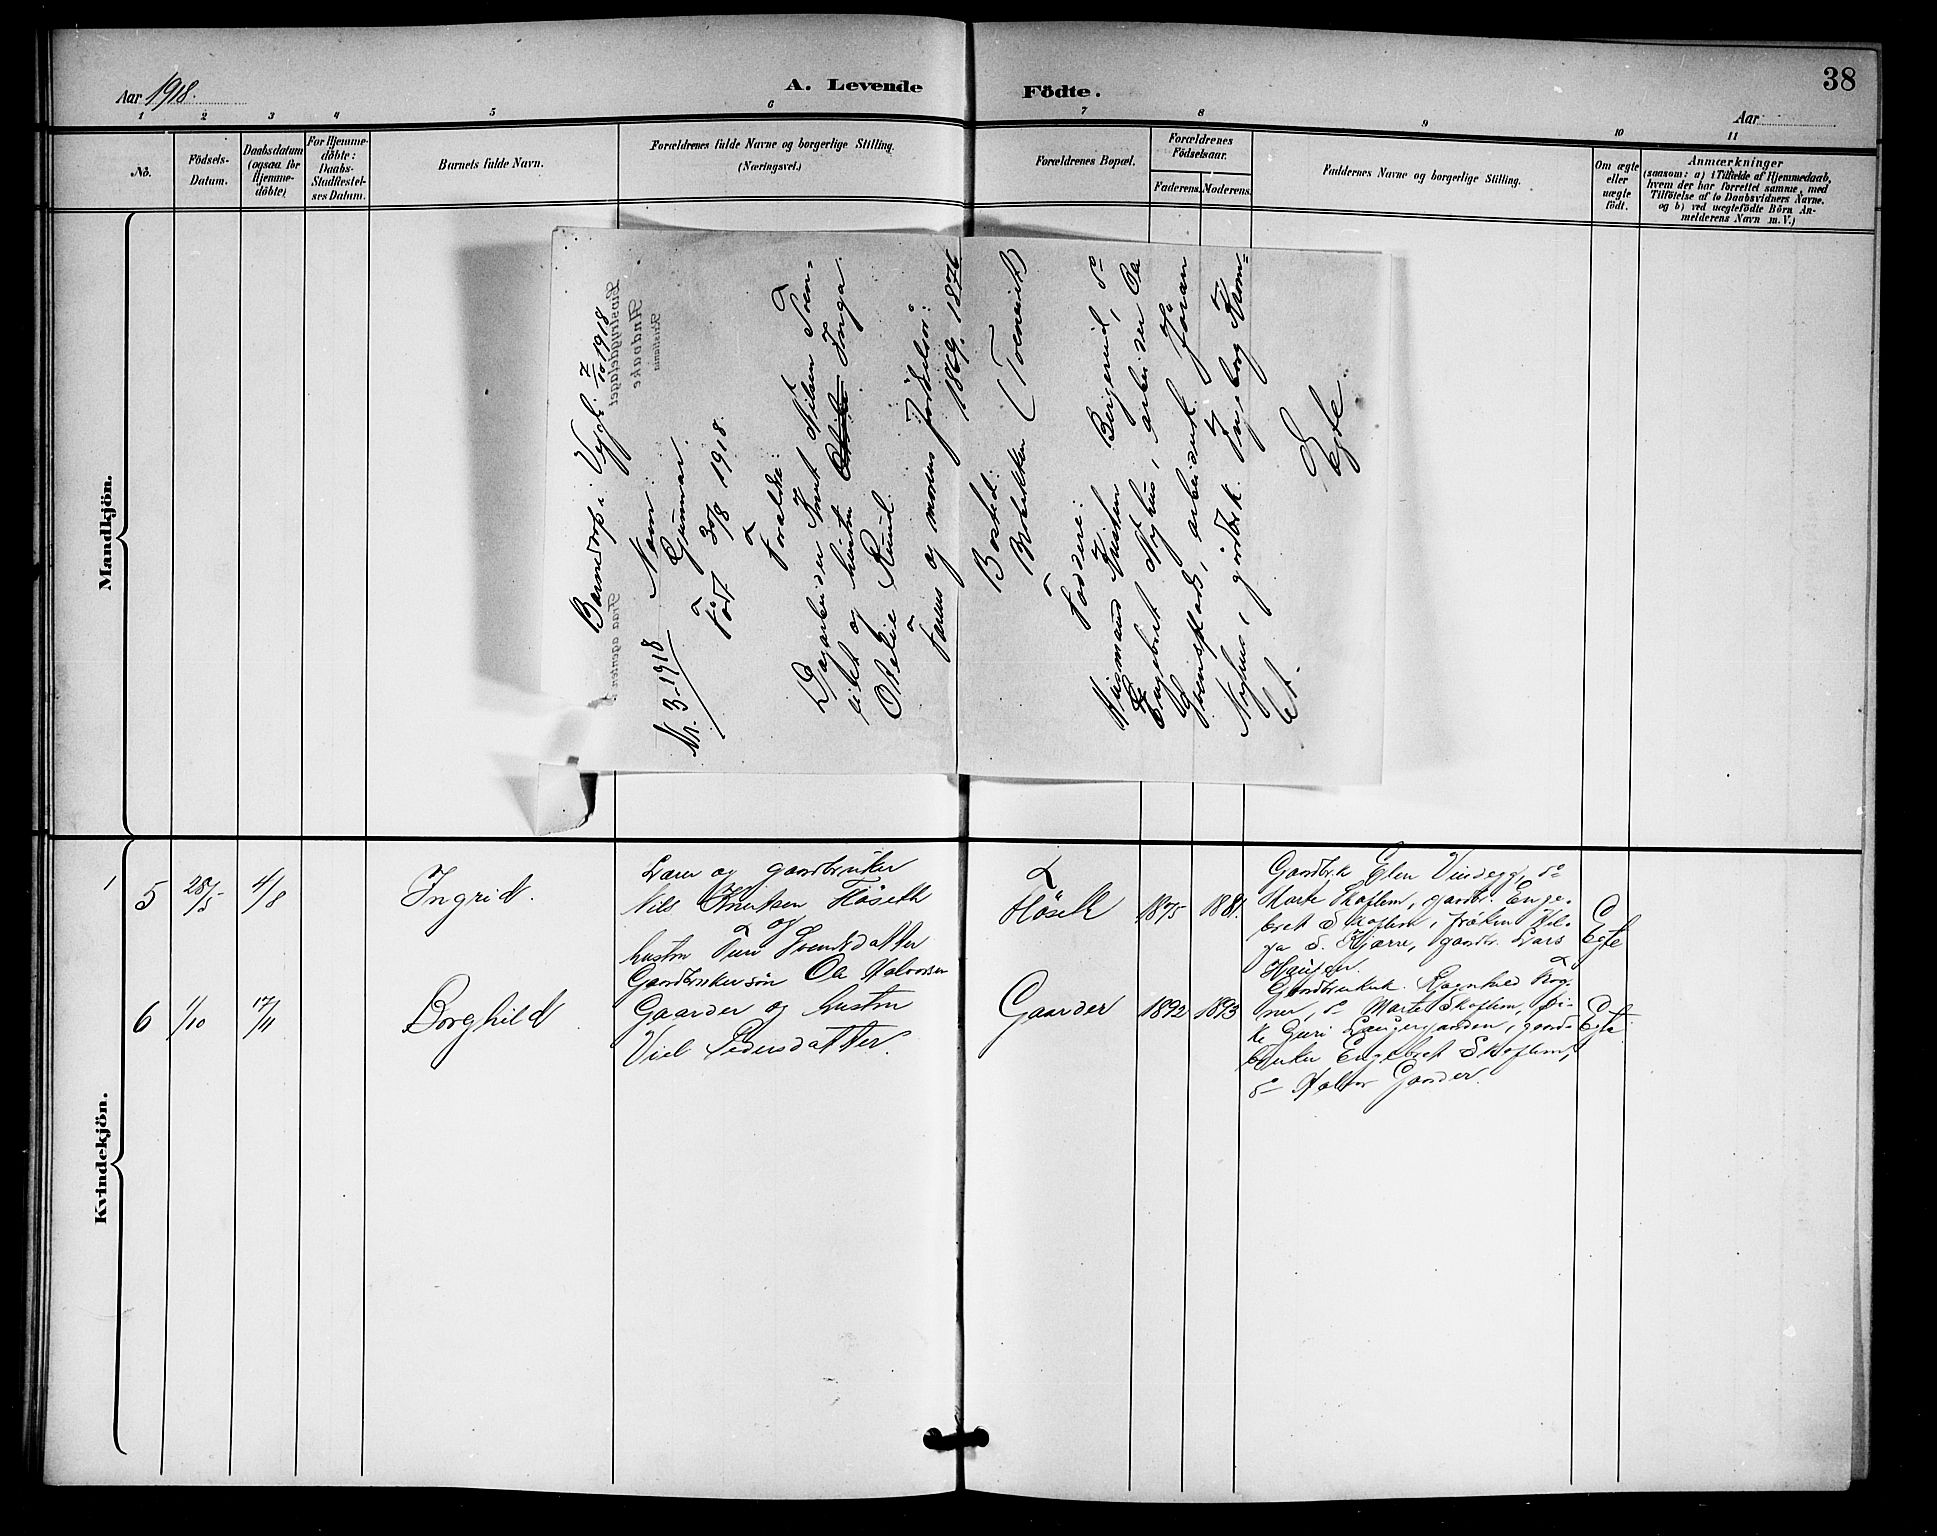 38
Aar 1918.
A. Levende
Födte.
Aar
1
2
3
4
5
6
7
8
9
10
11
No.
Födsels-
Datum.
Daabsdatum
(ogsaa for
Hjemme-
döbte)
For Hjemme-
döbte:
Daabs-
Stadfestel-
ses Datum.
Barnets fulde Navn.
Forældrenes fulde Navne og borgerlige Stilling.
(Næringsvei.)
Forældrenes Bopæl.
Forældrenes
Födselsaar.
Faderens.
Moderens.
Faddernes Navne og borgerlige Stilling.
Om ægte
eller
uægte
födt.
Anmærkninger
(saasom: a) i Tilfælde af Hjemmedaab,
hvem der har forrettet samme, med
Tilföielse af to Daabsvidners Navne.
og b) ved uægtefödte Börn An-
melderens Navn m. V.)
Mandkjön.
Barnedaap i Veggli 7/10 1918
Nr. 3-1918
Navn:
Gunnar.
Født 30/8 1918.
Foraldre:
Dagarbeider Knut Nilsen Tven-
eitet og hustru Inga
Otelie Ruud.
Farens og morens fødselsår:
1869. 1876
Bosted:
Bolikken (Tveneitet)
Faddere:
Husmand Kristen Bergerud, do
Engebret Nyhus, arbeider Oa
Svenseplads, arbeiderk. Jøran
Nyhus, gårdbrk. Ingeborg From-
Egte.
Kvindekjön.
1
5
28/5
4/8
Ingrid.
Lærer og gaardbruker
Nils Knutsen Fløseth
og
hustru Turi Svendsdatter
Fløseth
1875
1881.
Gaardbr.k Elen Vindegg, do
Marte Skoflem, gaardbr. Enge-
bret Skoflem, frøken Hel-
ga S. Kjærre, gaardbr. Lars
Egte
6
1/10
17/11
Borghild
Gaardbrukersøn Oa Halvorsen
Gaarder og hustru
Viel Pedersdatter.
Gaarder
1892
1893
Gaardbrukerk. Ragnhild Rog-
ner, do Marte Skoflem, pi-
ke Guri Laugergaarden, gaard-
bruker Engebret Skoflem,
do Halvor Gaarder.
Egte